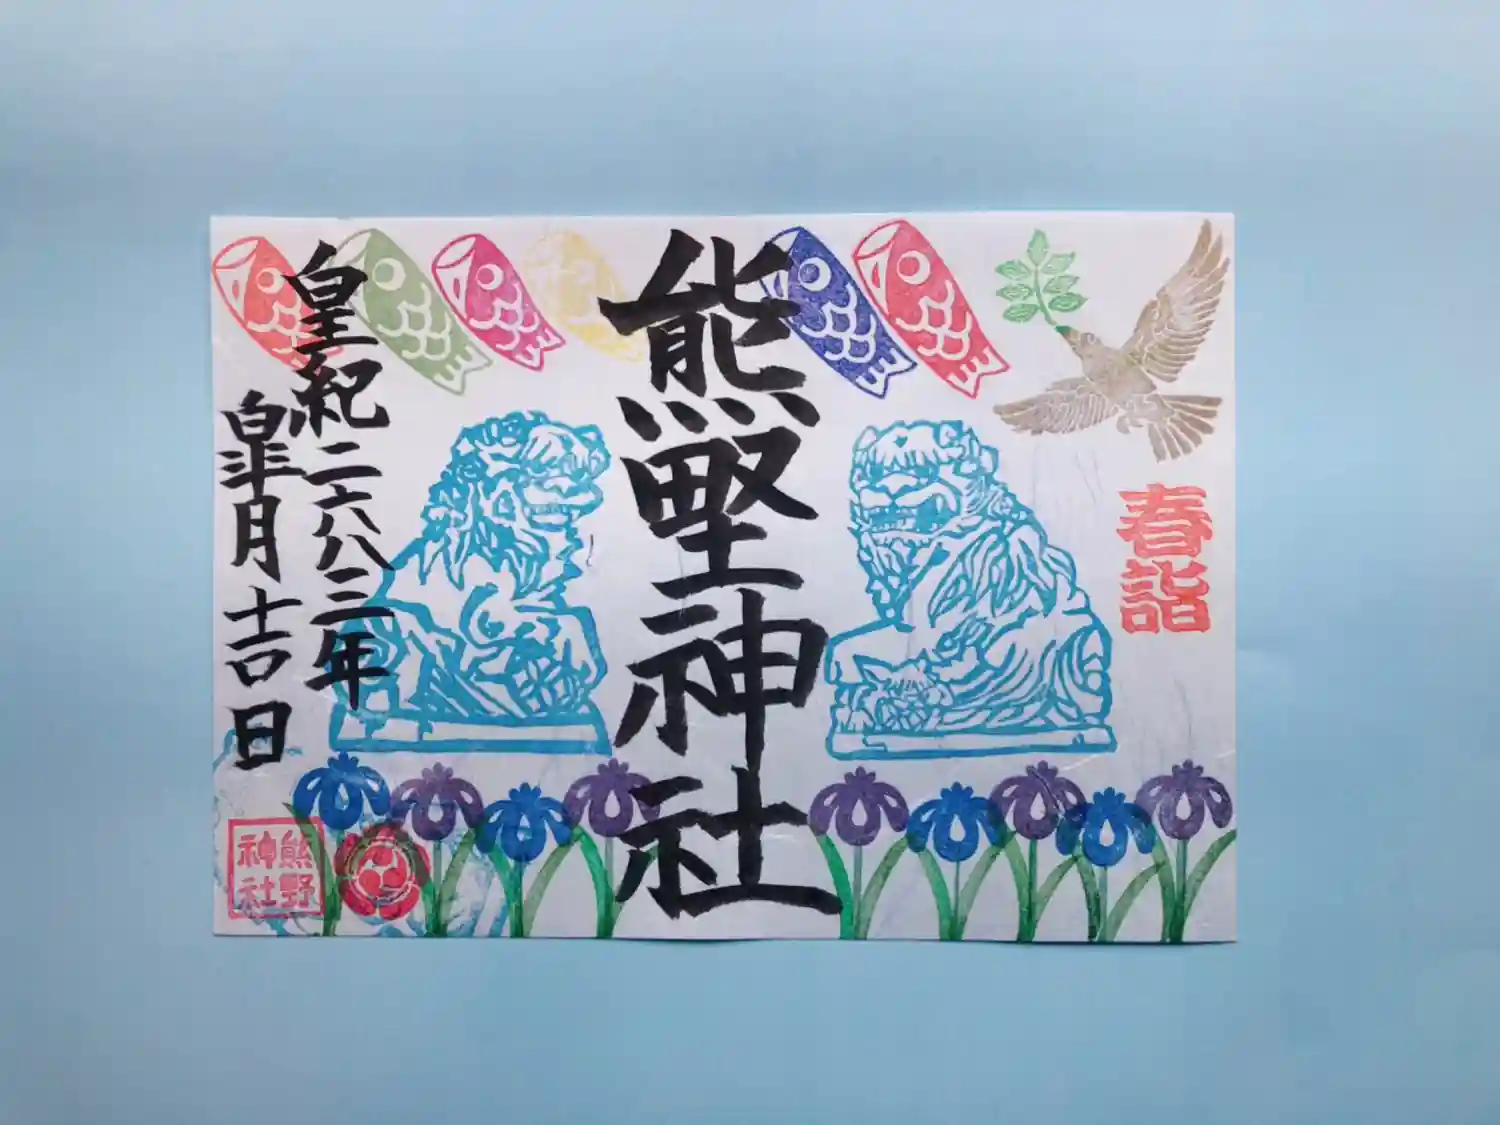 春詣
熊野神社
皇紀二六八三年
皐月吉日
熊野
神社